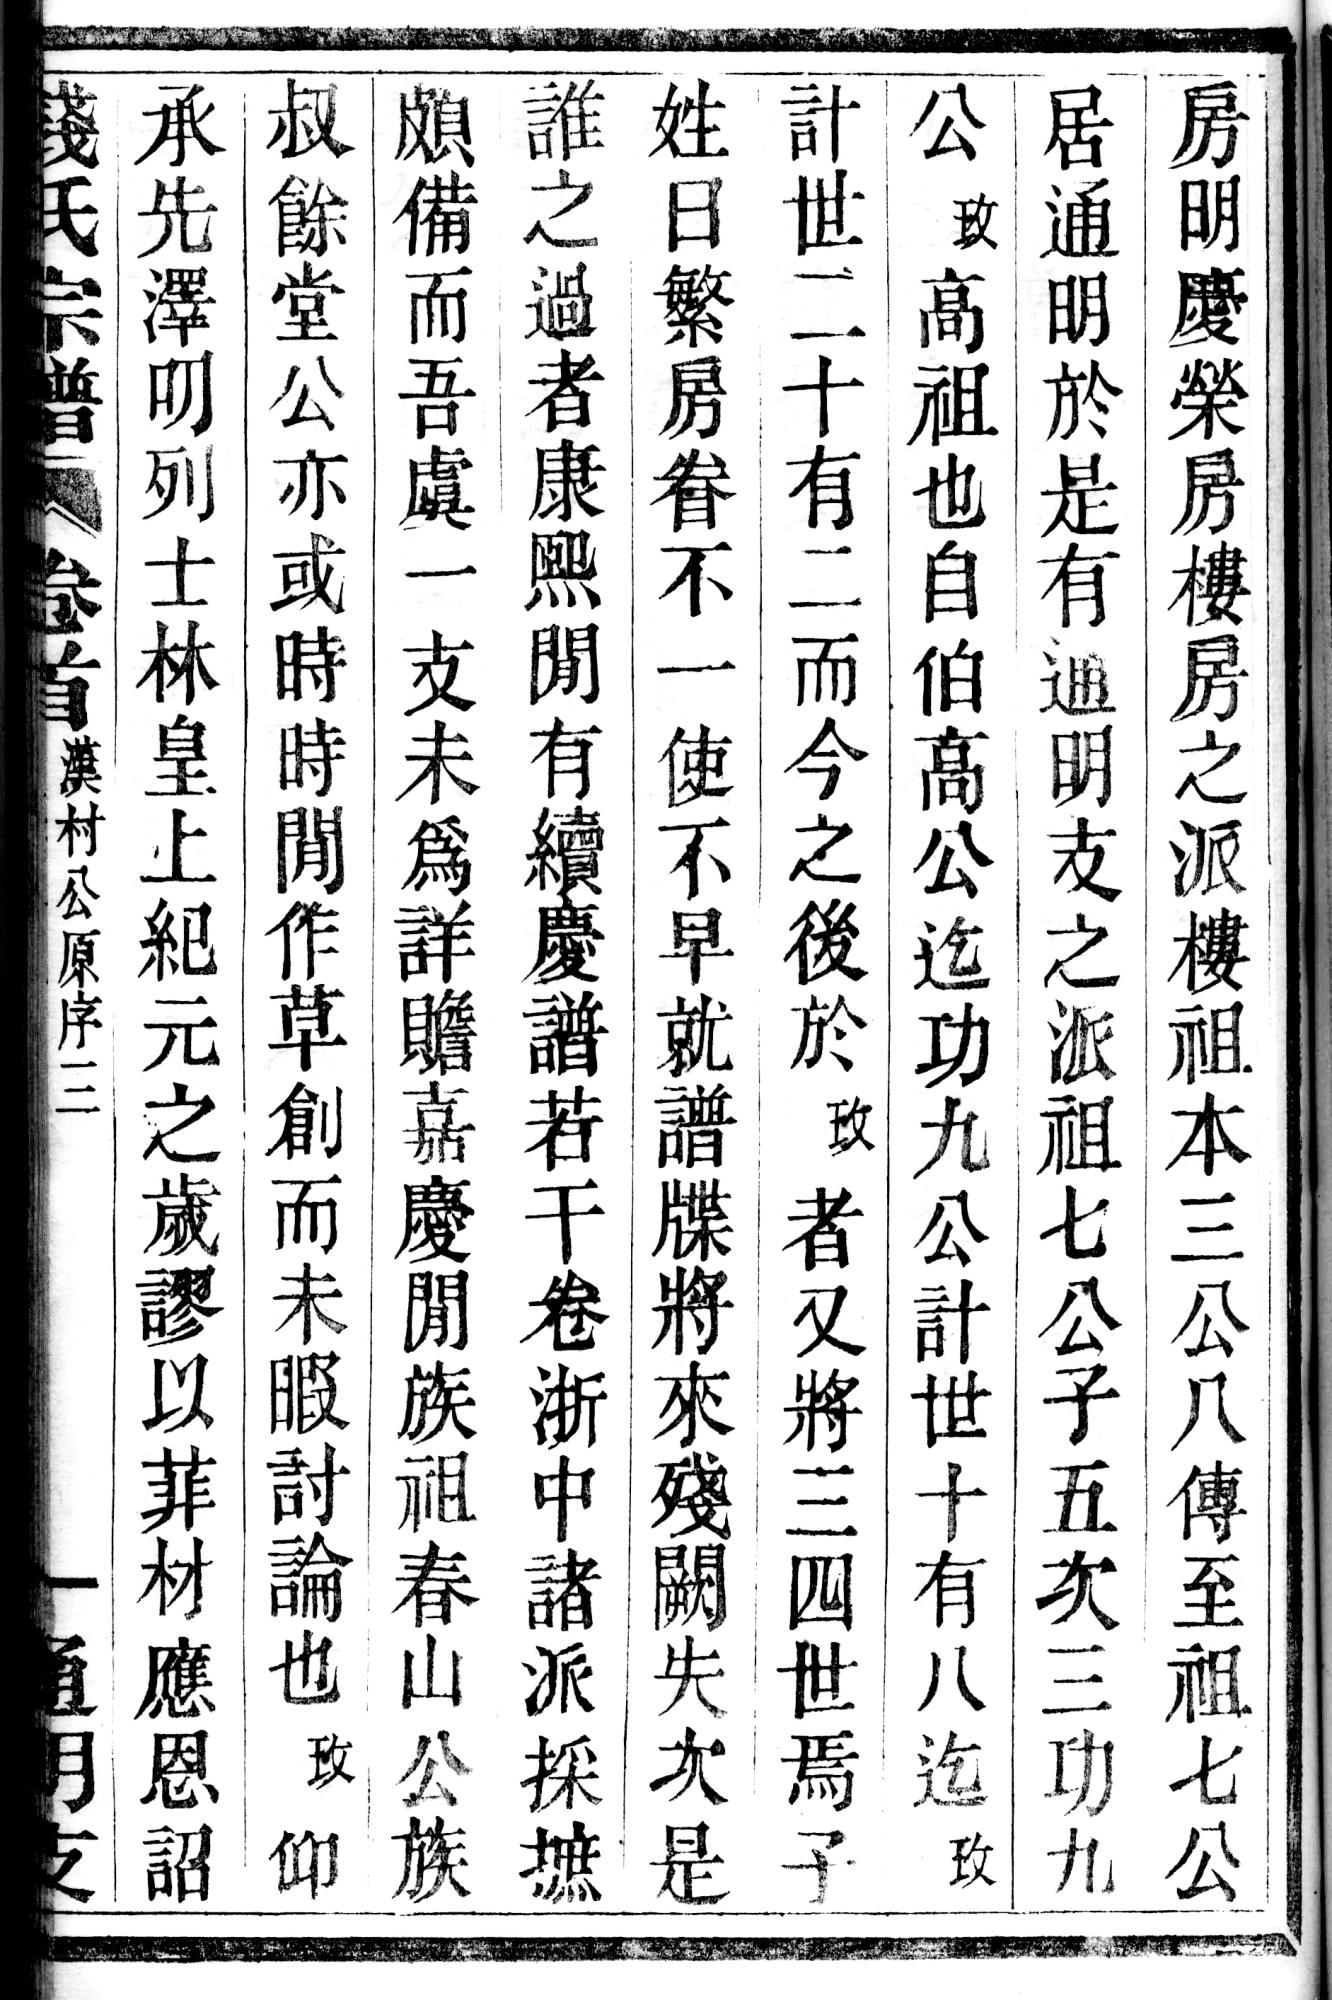 房明慶榮房樓房之派樓祖本三公八傳至祖七公
居通明於是有通明支之派祖七公子五次三功九
公玫高祖也自伯高公迄功九公計世十有八迄玫
計世二十有二而今之後於玫者又將三四世焉子
姓日繁房眷不一使不早就譜牒將來殘闕失次是
誰之過者康熙閒有續慶譜若干卷浙中諸派採摭
頗備而吾虞一支未爲詳贍嘉慶閒族祖春山公族
叔餘堂公亦或時時閒作草創而未暇討論也玫仰
承先澤叨列士林皇上紀元之歲謬以菲材應恩詔
錢氏宗譜 卷首 漢村公原序三 一 通明支